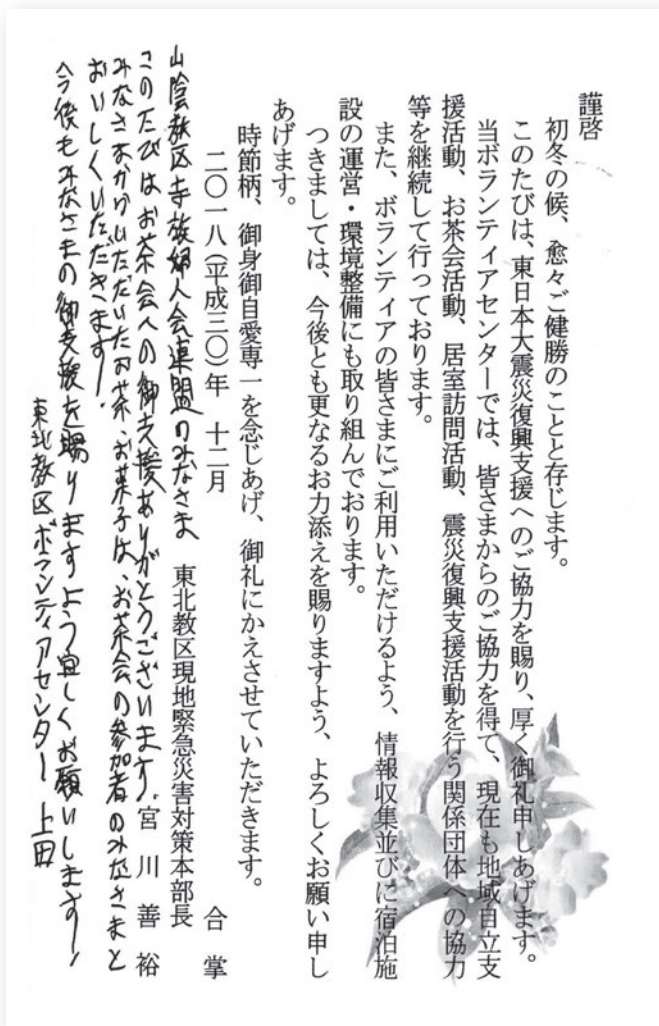 謹啓
初冬の候、愈々ご健勝のことと存じます。
このたびは、東日本大震災復興支援へのご協力を賜り、厚く御礼申しあげます。
当ボランティアセンターでは、皆さまからのご協力を得て、現在も地域自立支
援活動、お茶会活動、居室訪問活動、震災復興支援活動を行う関係団体への協力
等を継続して行っております。
また、ボランティアの皆さまにご利用いただけるよう、情報収集並びに宿泊施
設の運営・環境整備にも取り組んでおります。
つきましては、今後とも更なるお力添えを賜りますよう、よろしくお願い申し
あげます。
時節柄、御身御自愛専一を念じあげ、御礼にかえさせていただきます。
合掌
二〇一八(平成三〇)年 十二月
東北教区現地緊急災害対策本部長
宮川善裕
山陰教区寺族婦人会連盟のみなさま
このたびはお茶会への御支援ありがとうございます。
みなさまからいただいたお茶・お菓子は、お茶会の参加者のみなさまと
おいしくいただきます!
今後もみなさまの御支援を賜りますよう宜しくお願いします!
東北教区ボランティアセンター 上田